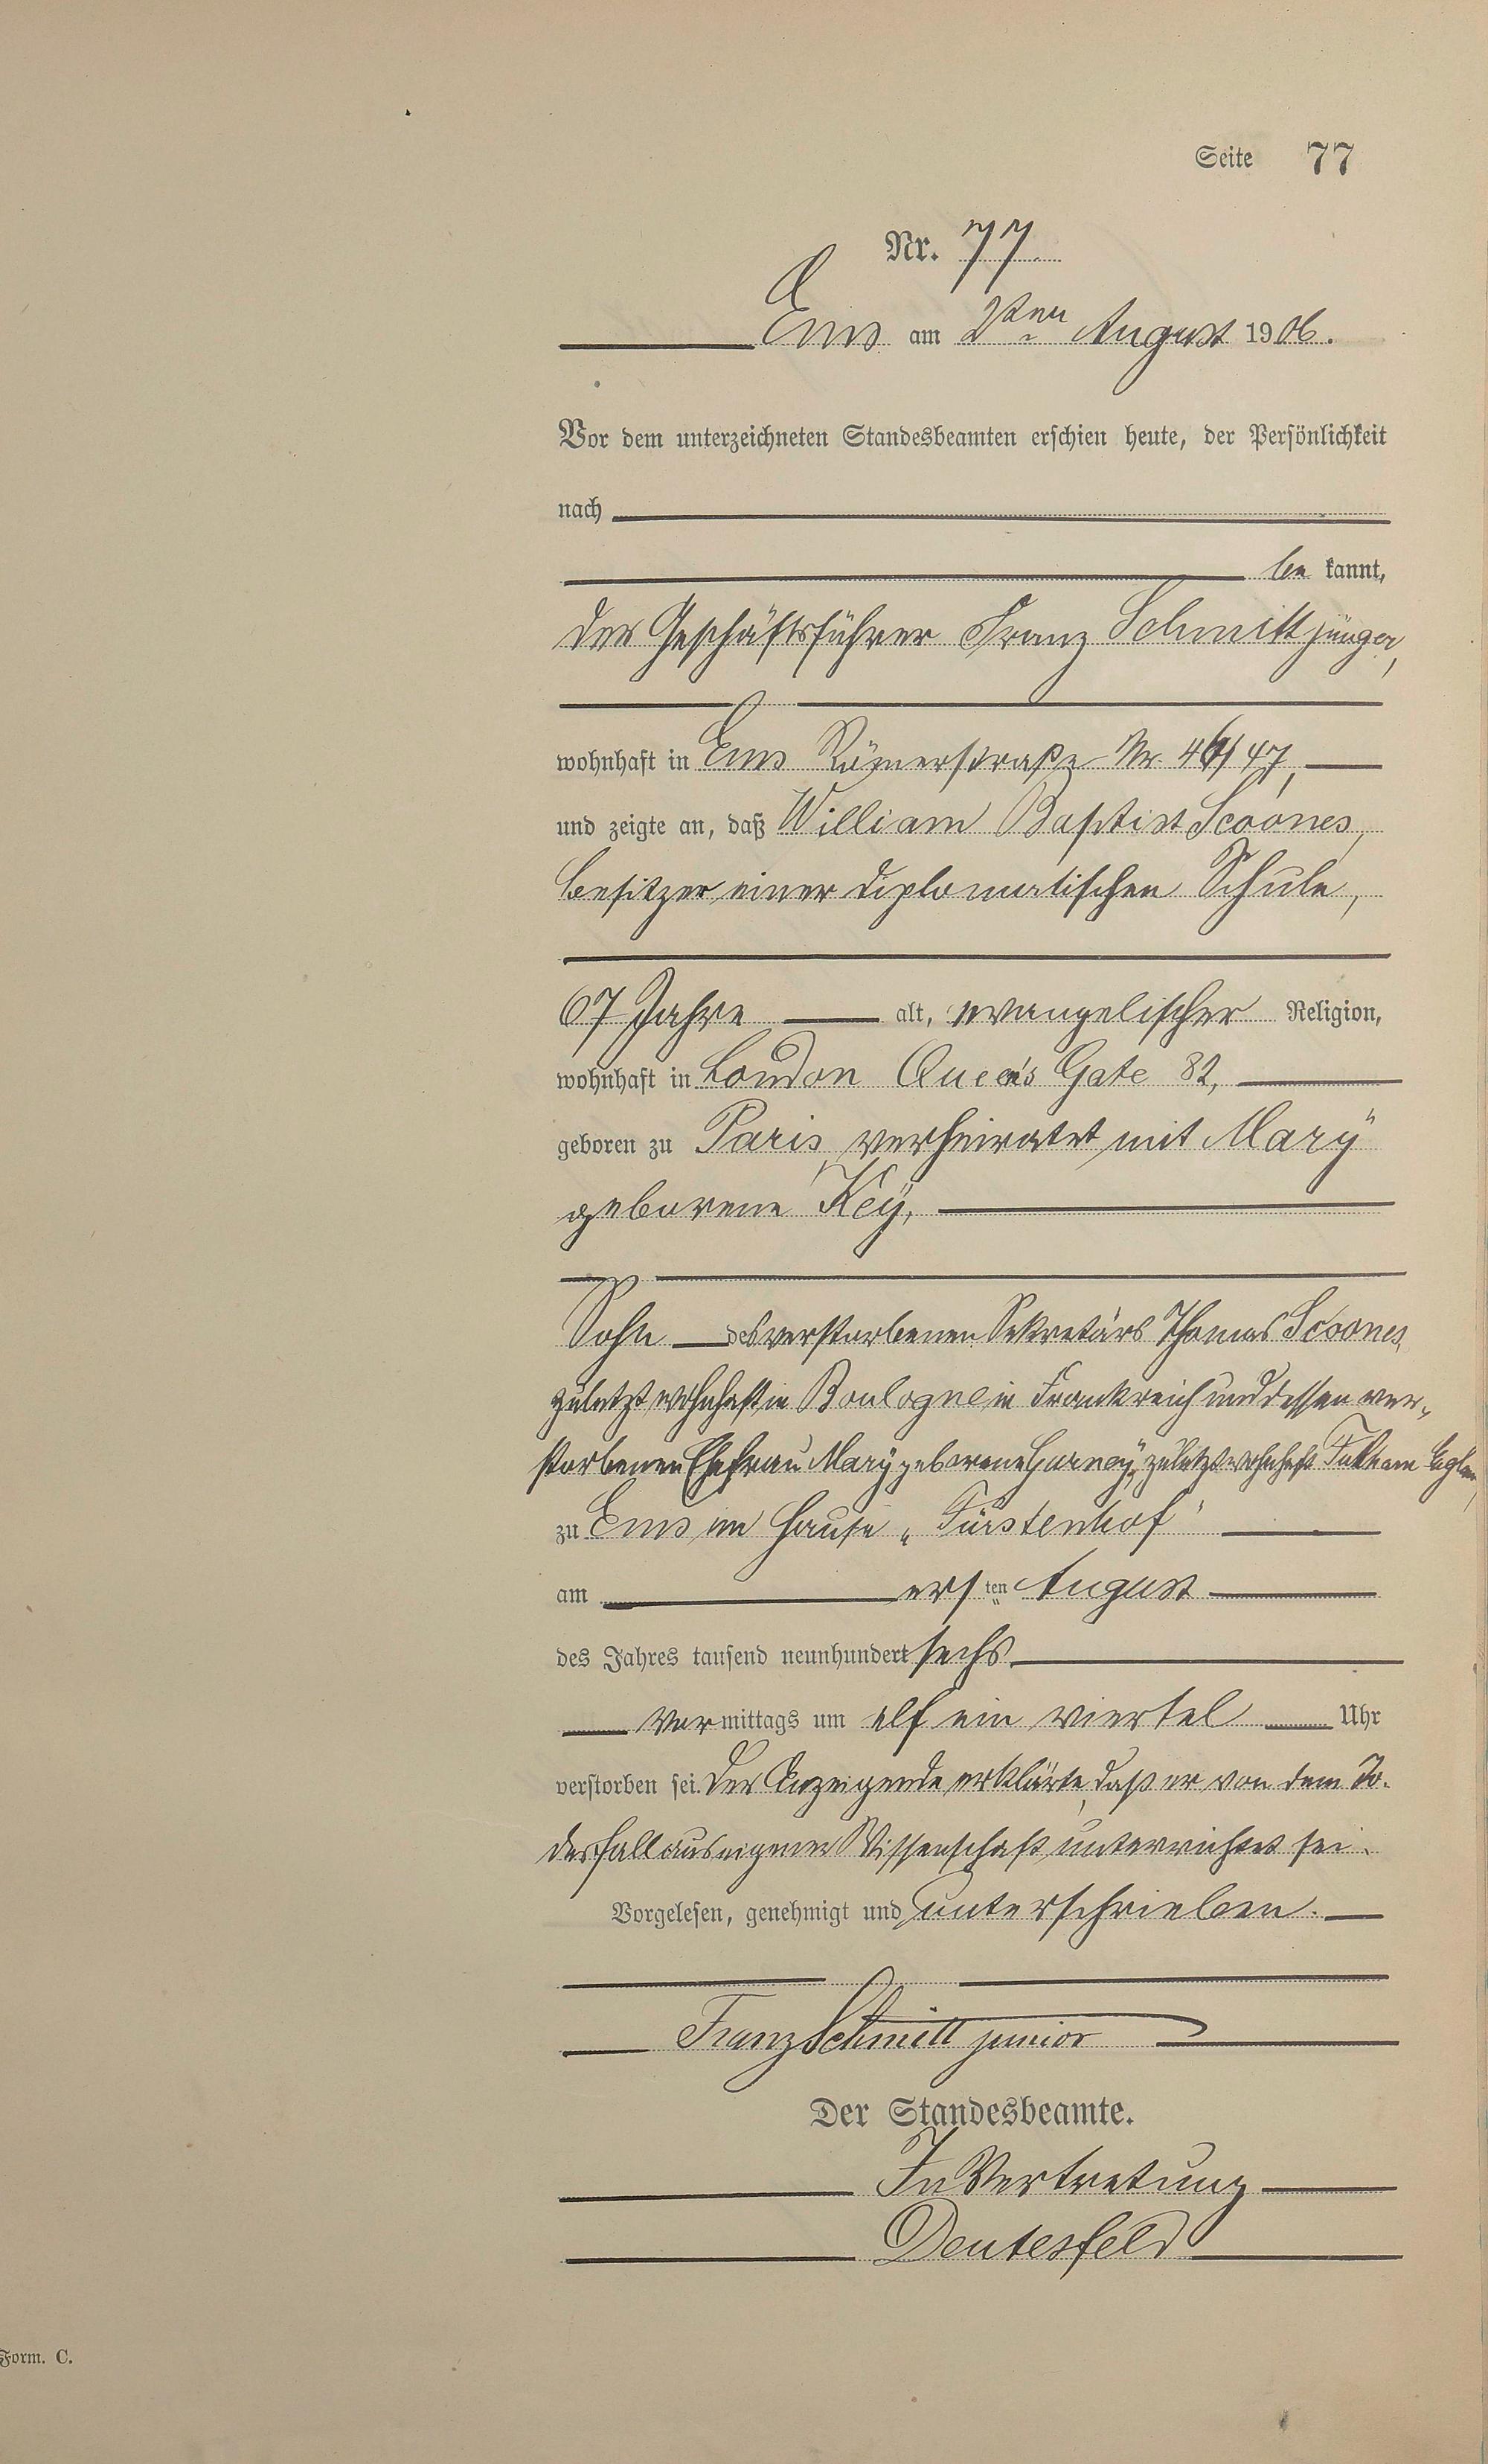 Seite 77
Nr. 77
Ems am 2ten August 1906.
Vor dem unterzeichneten Standesbeamten erschien heute, der Persönlichkeit
nach
be kannt,
der Geschäftsführer Franz Schmitt jünger,
wohnhaft in Ems Römerstraße Nr. 46/47,
und zeigte an, daß William Baptist Scoones,
Besitzer einer diplomatischen Schule,
67 Jahre alt, evangelischer Religion,
wohnhaft in London Queen's Gate 82,
geboren zu Paris, verheiratet mit Marÿ
geborene Keÿ,
Sohn des verstorbenen Sekretärs Thomas Scoones,
zuletzt wohnhaft in Boulogne in Frankreich und dessen ver-
storbenen Ehefrau Marÿ geborene Gurneÿ, zuletzt wohnhaft
zu Ems im Hause „Fürstenhof"
am ersten August
des Jahres tausend neunhundert sechs
Vor mittags um elf ein viertel Uhr
verstorben sei. Der Anzeigende erklärte, daß er von dem To-
desfall aus eigener Wissenschaft unterrichtet sei.
Vorgelesen, genehmigt und unterschrieben.
Franz Schmitt junior
Der Standesbeamte.
In Vertretung
Deutesfeld
Form. C.